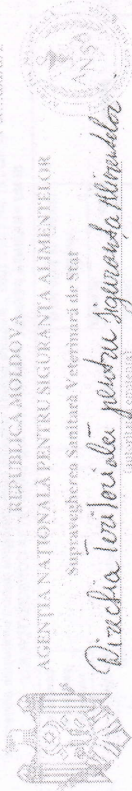 REPUBLICA MOLDOVA
AGENȚIA NAȚIONALĂ PENTRU SIGURANȚA ALIMENTELOR
Supravegherea Sanitară Veterinară de Stat
Direcția Teritorială pentru Siguranța Alimentelor
ANSA